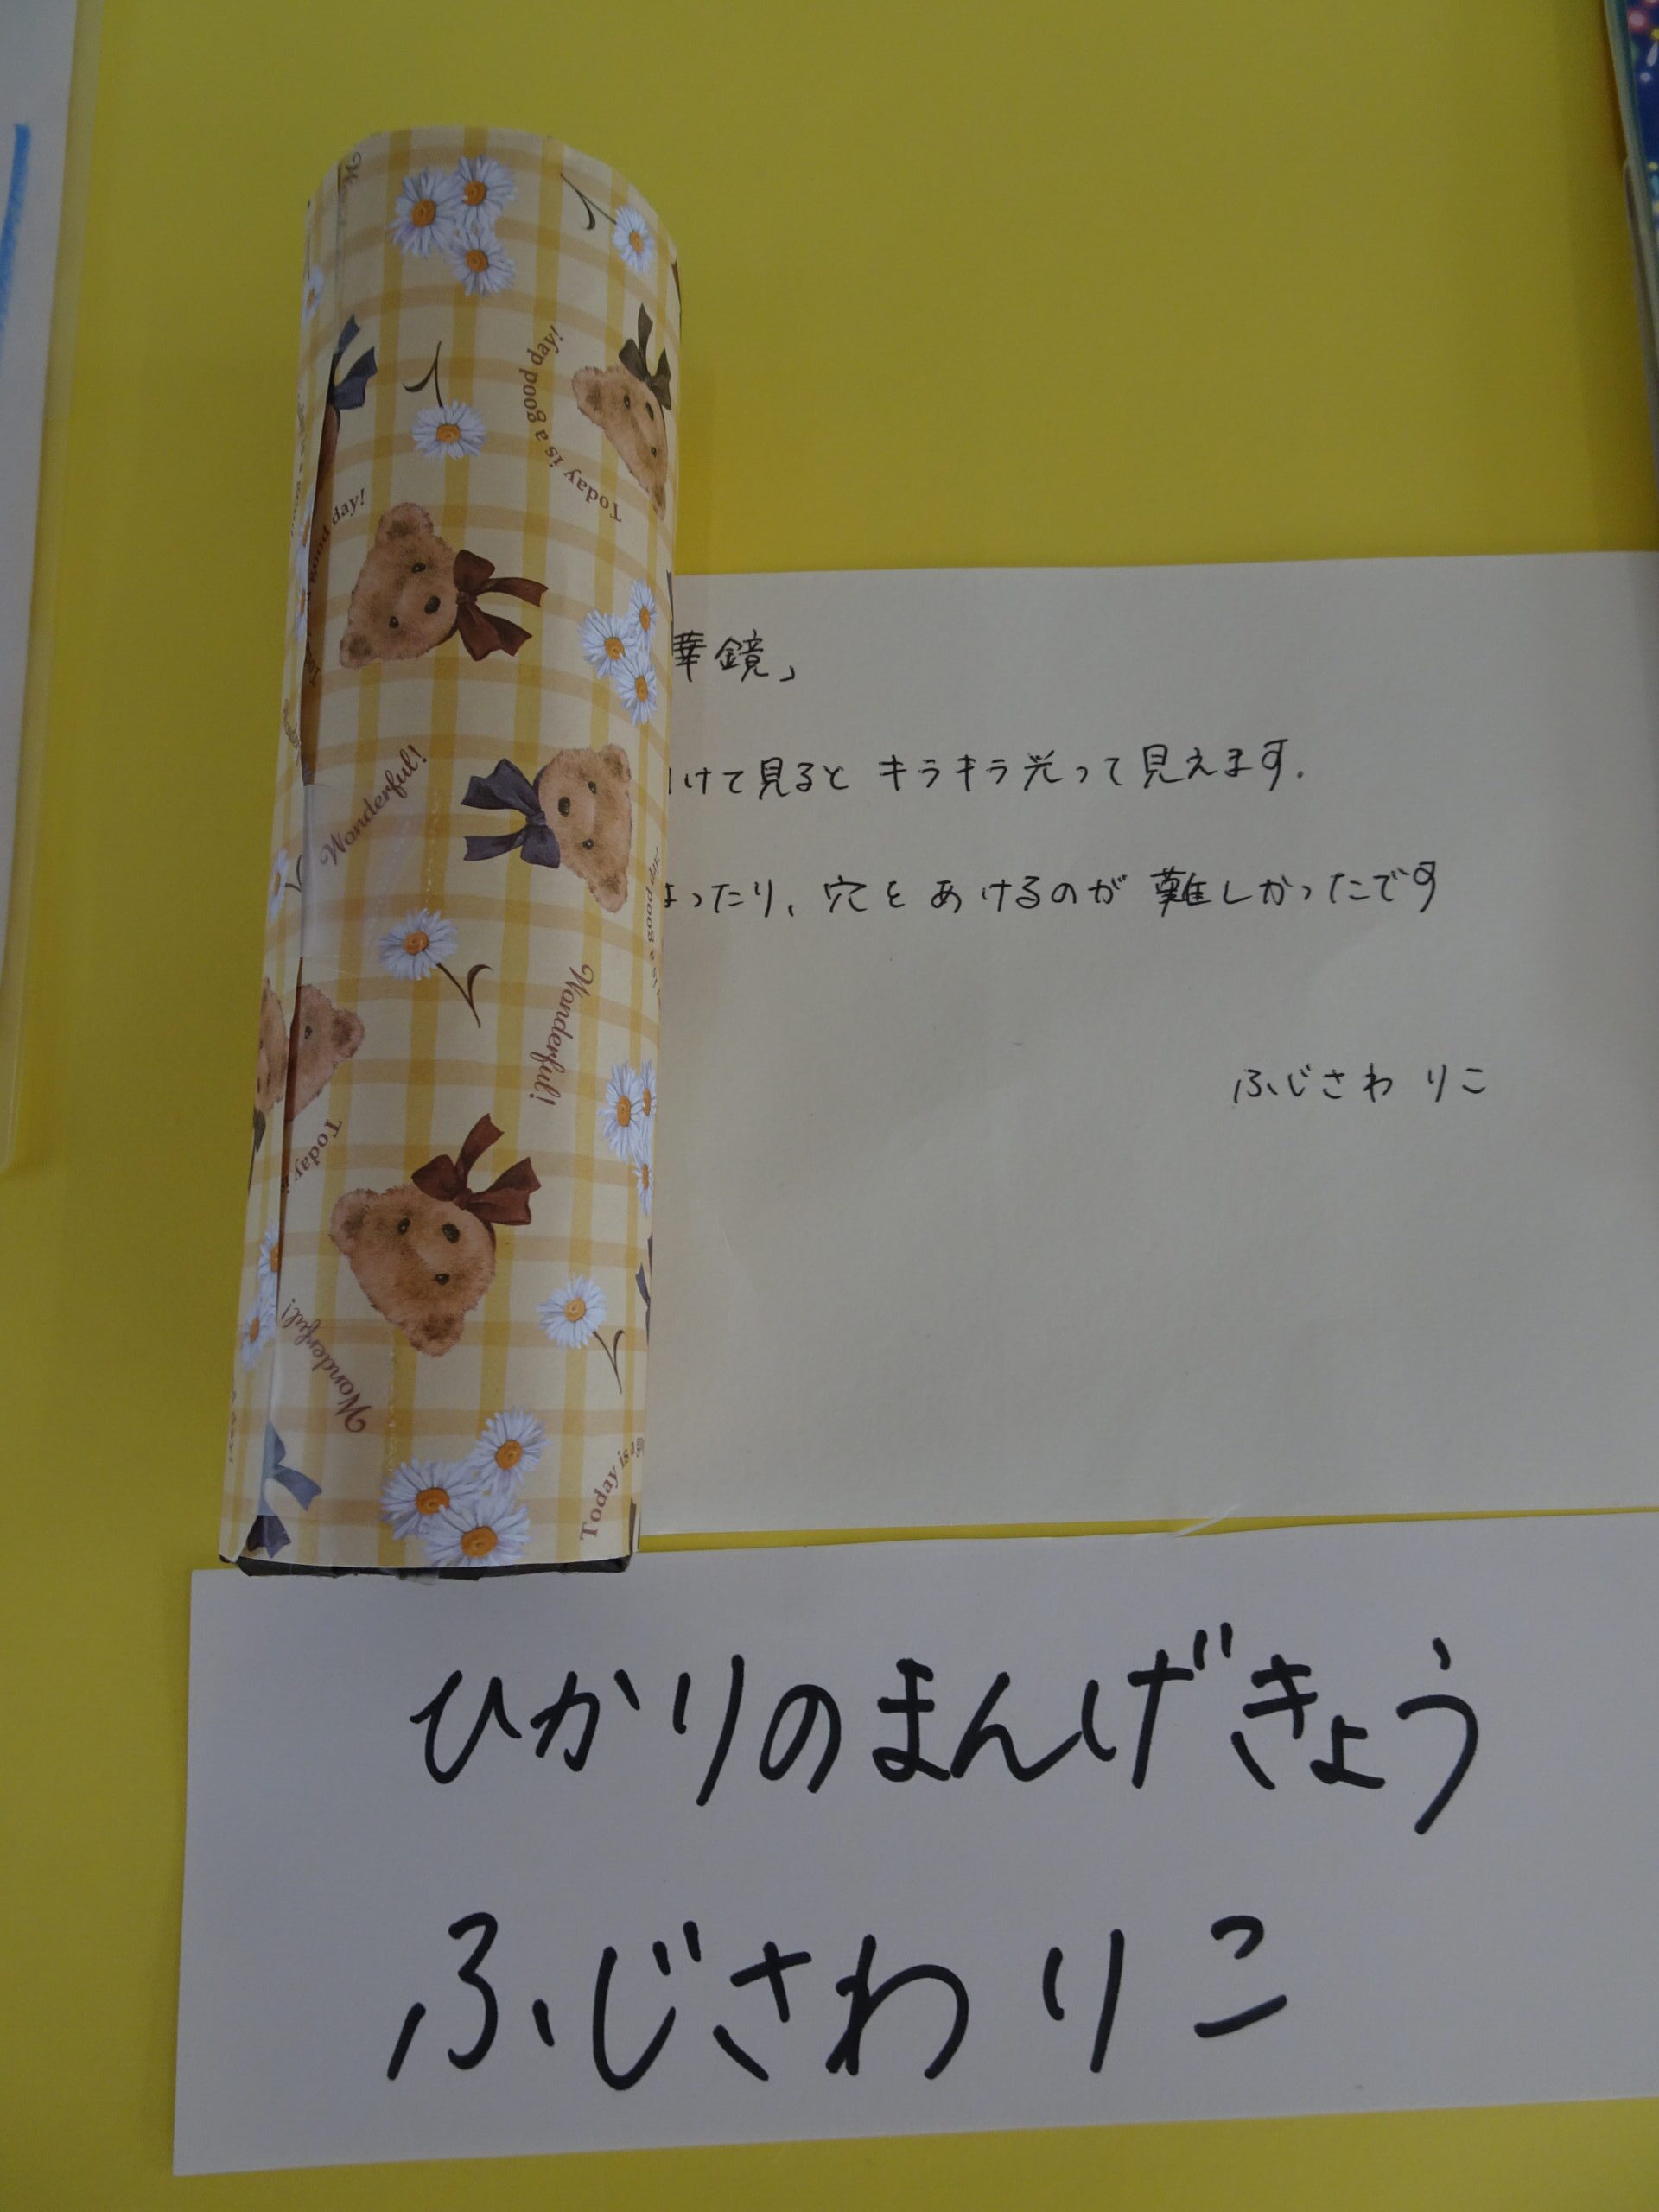 Today is a good day!
good day!
Wonderful!
Wonderful!
Today is
Wonderful!
Today is a
華鏡」
けて見ると キラキラ光って見えます.
ったり、穴をあけるのが 難しかったです
ふじさわ りこ
ひかりのまんげきょう
ふじさわ りこ